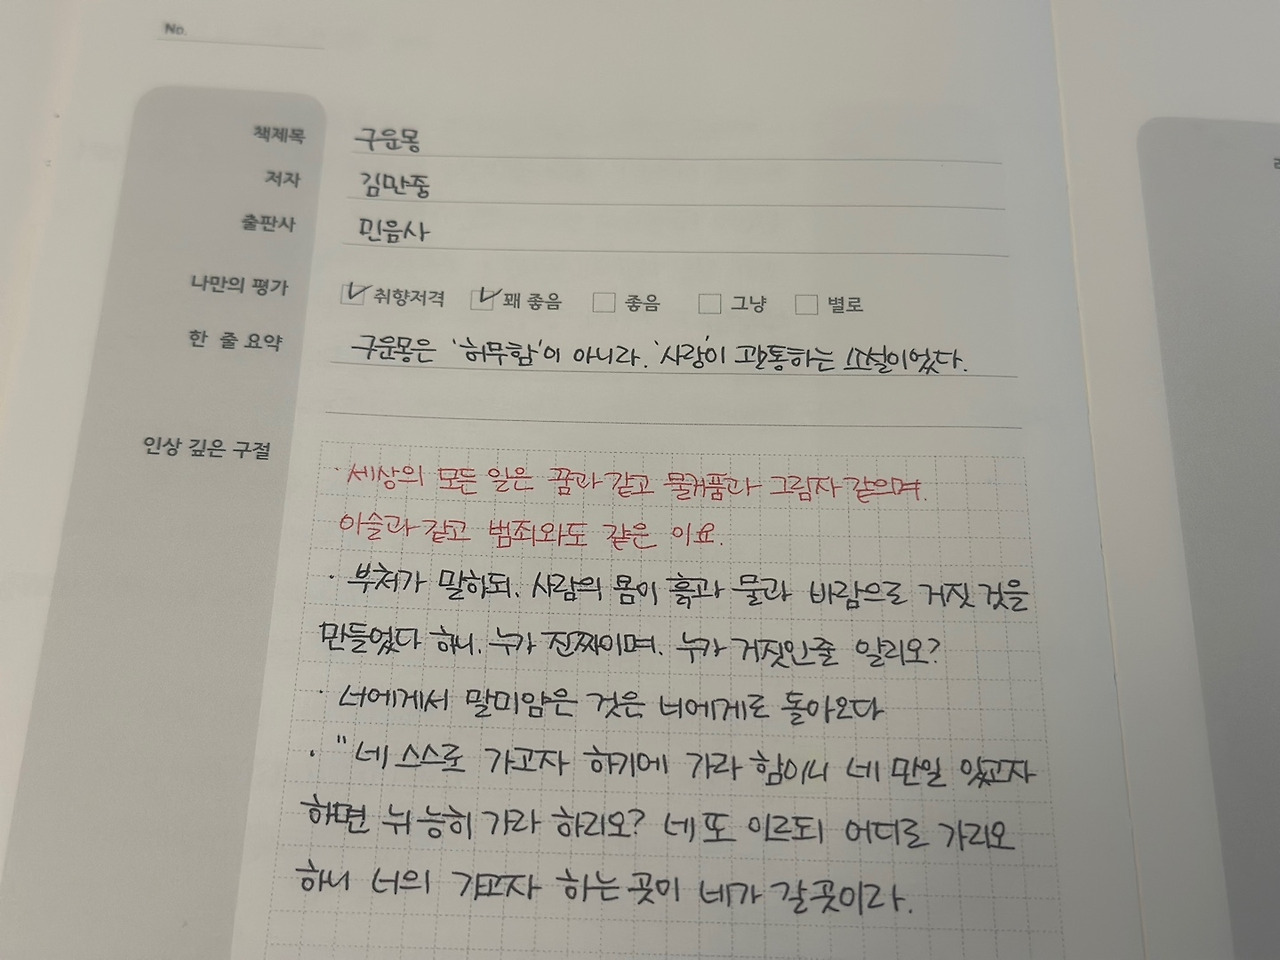 No.
책제목 구운몽
저자 김만중
출판사 민음사
나만의 평가 취향저격 꽤 좋음 좋음 그냥 별로
한 줄 요약 구운몽은 '허무함'이 아니라. '사랑'이 관통하는 소설이었다.
인상 깊은 구절
· 세상의 모든 일은 꿈과 같고 물거품과 그림자 같으며.
이슬과 같고 범죄와도 같은 이요.
· 부처가 말하되. 사람의 몸이 흙과 물과 바람으로 거짓 것을
만들었다 하니. 누가 진짜이며. 누가 거짓인줄 알리오?
· 너에게서 말미암은 것은 너에게로 돌아오다
· "네 스스로 가고자 하기에 가라 함이니 네 만일 있고자
하면 뉘 능히 가라 하리오? 네 또 이르되 어디로 가리오
하니 너의 가고자 하는 곳이 네가 갈 곳이라.